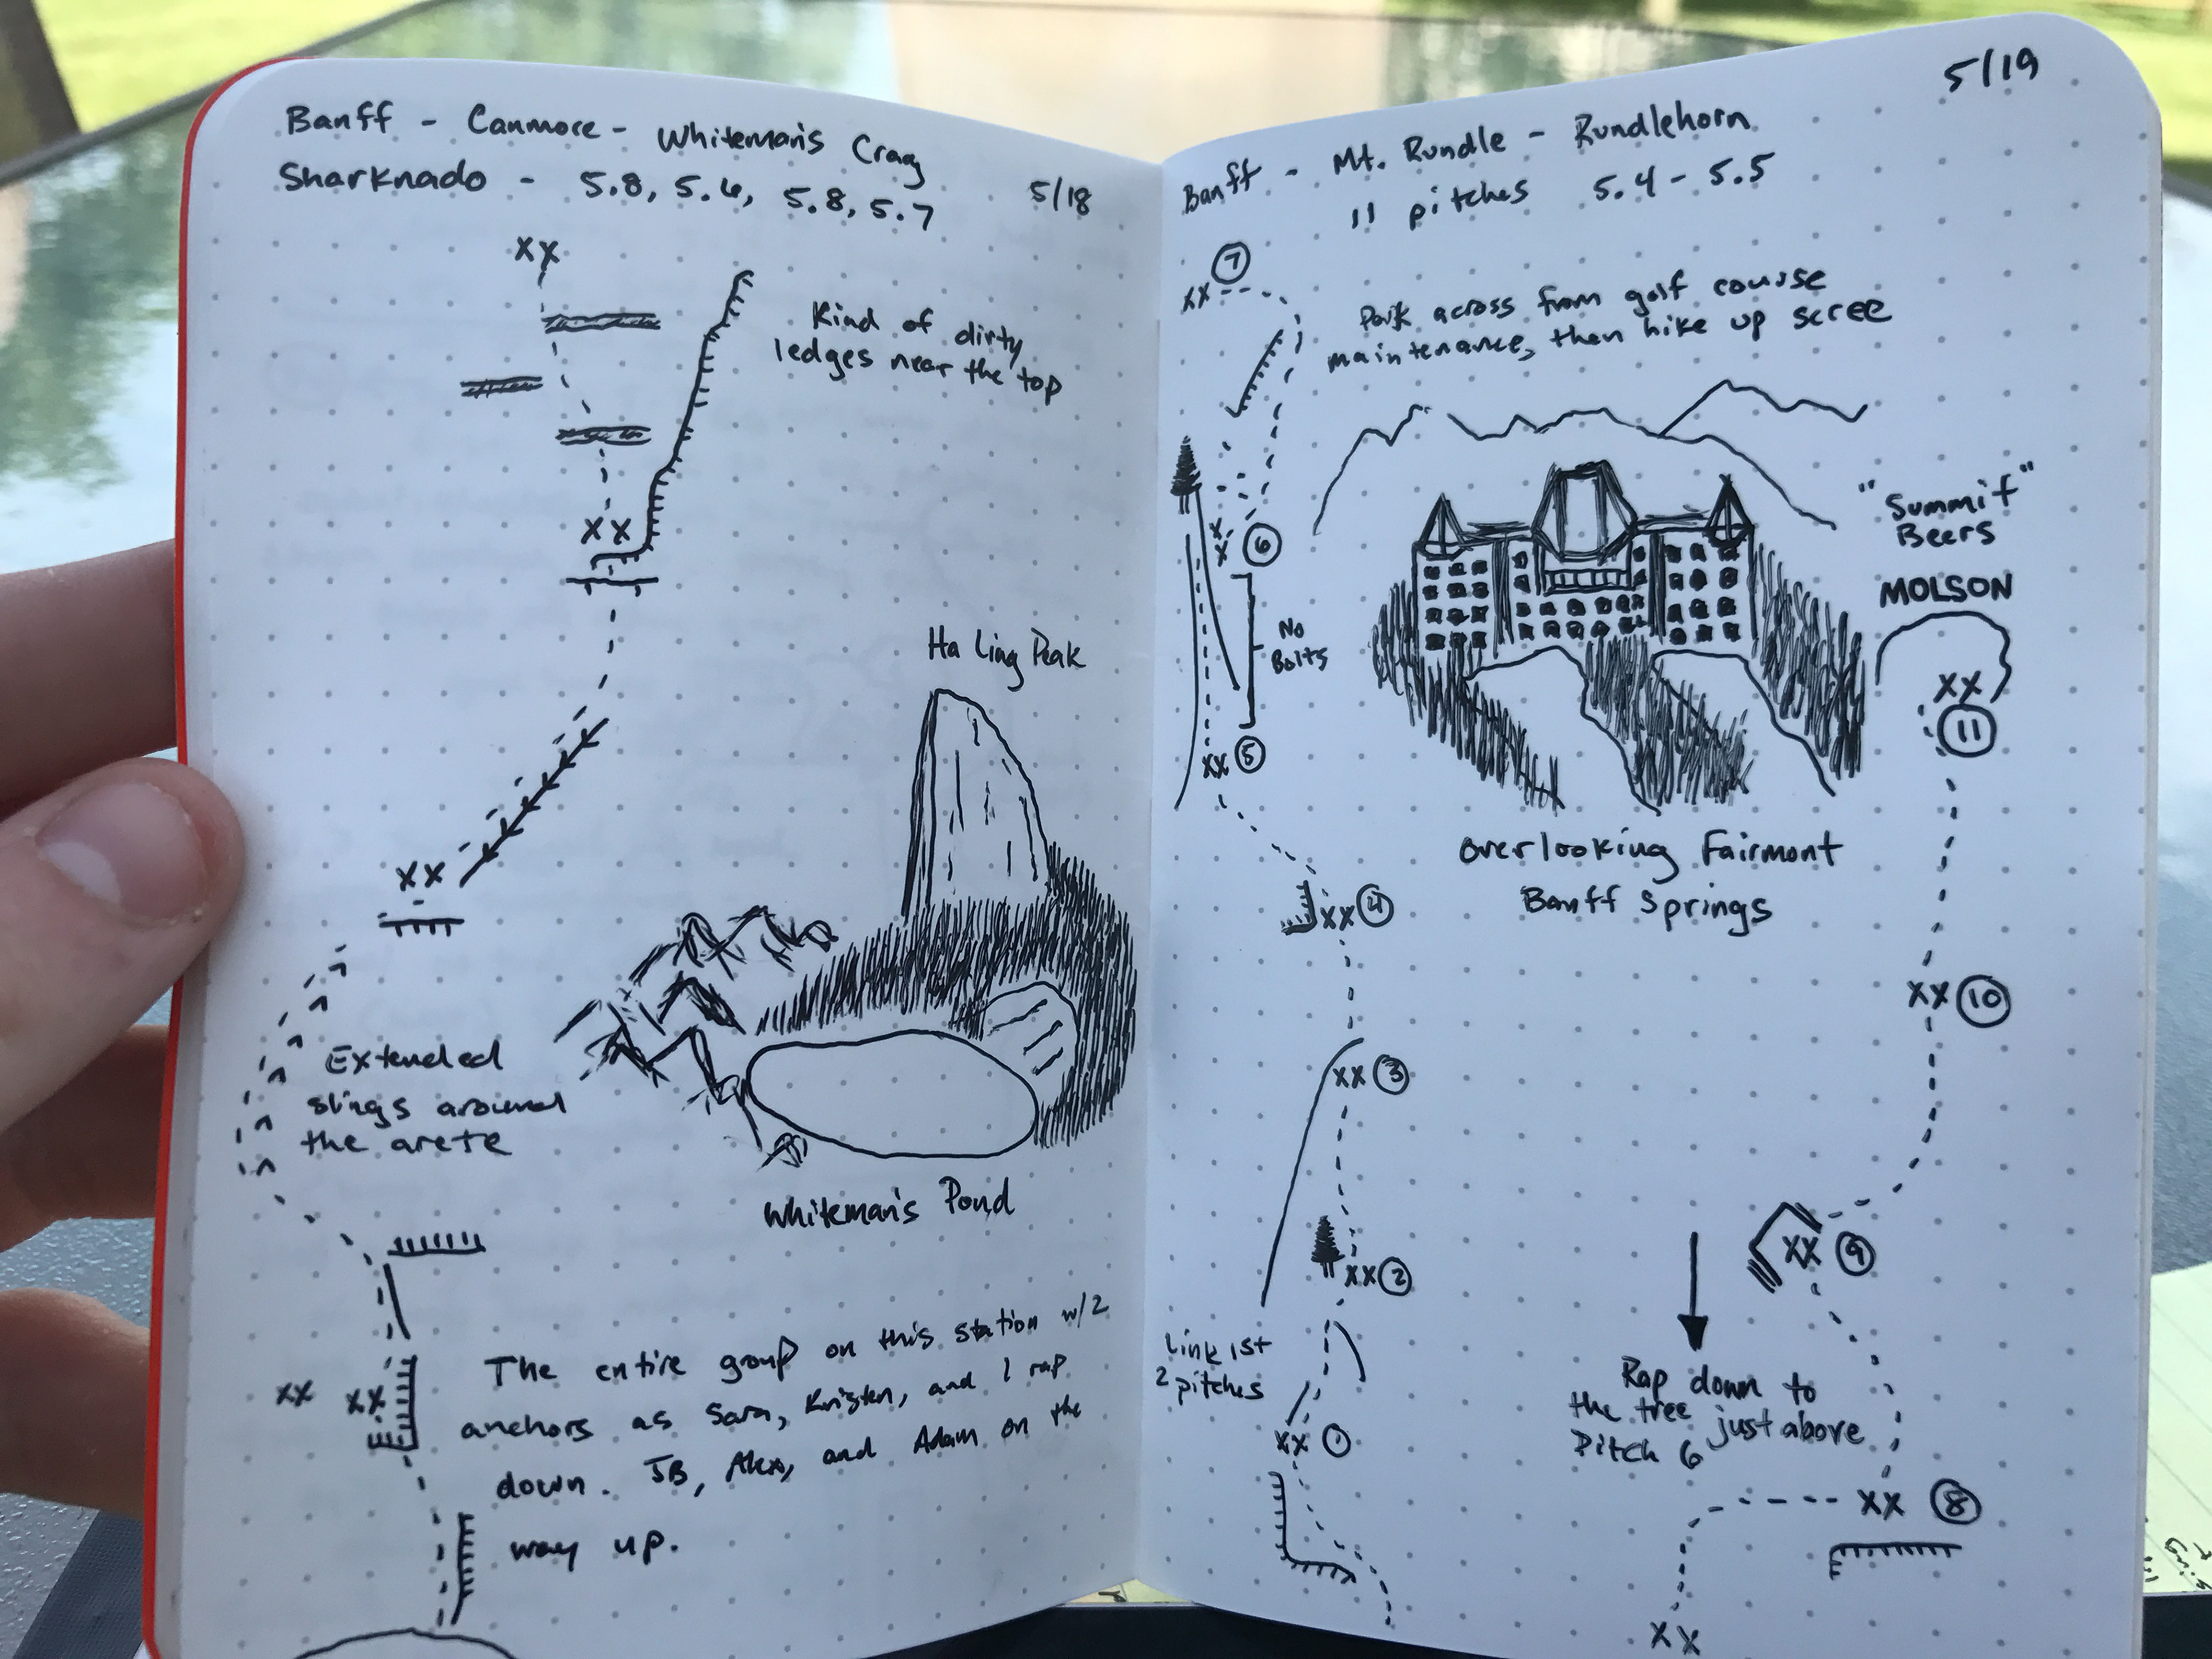 Banff - Canmore - Whiteman's Crag
Sharknado - 5.8, 5.6, 5.8, 5.7
5/18
XX
Kind of dirty
ledges near the top
XX
Ha Ling Peak
XX
Extended
slings around
the arete
Whiteman's Pond
XX XX
The entire group on this station w/2
anchors as Sara, Kristen, and I rap
down. JB, Alex, and Adam on the
way up.
5/19
Banff - Mt. Rundle - Rundlehorn
11 pitches 5.4 - 5.5
7
XX
Park across from golf course
maintenance, then hike up scree
"Summit"
Beers
MOLSON
XX
11
XX
6
No
Bolts
XX 5
Overlooking Fairmont
Banff Springs
XX 4
XX 10
XX 3
XX 9
XX 2
Link 1st
2 pitches
XX 1
Rap down to
the tree just above
Pitch 6
XX 8
XX